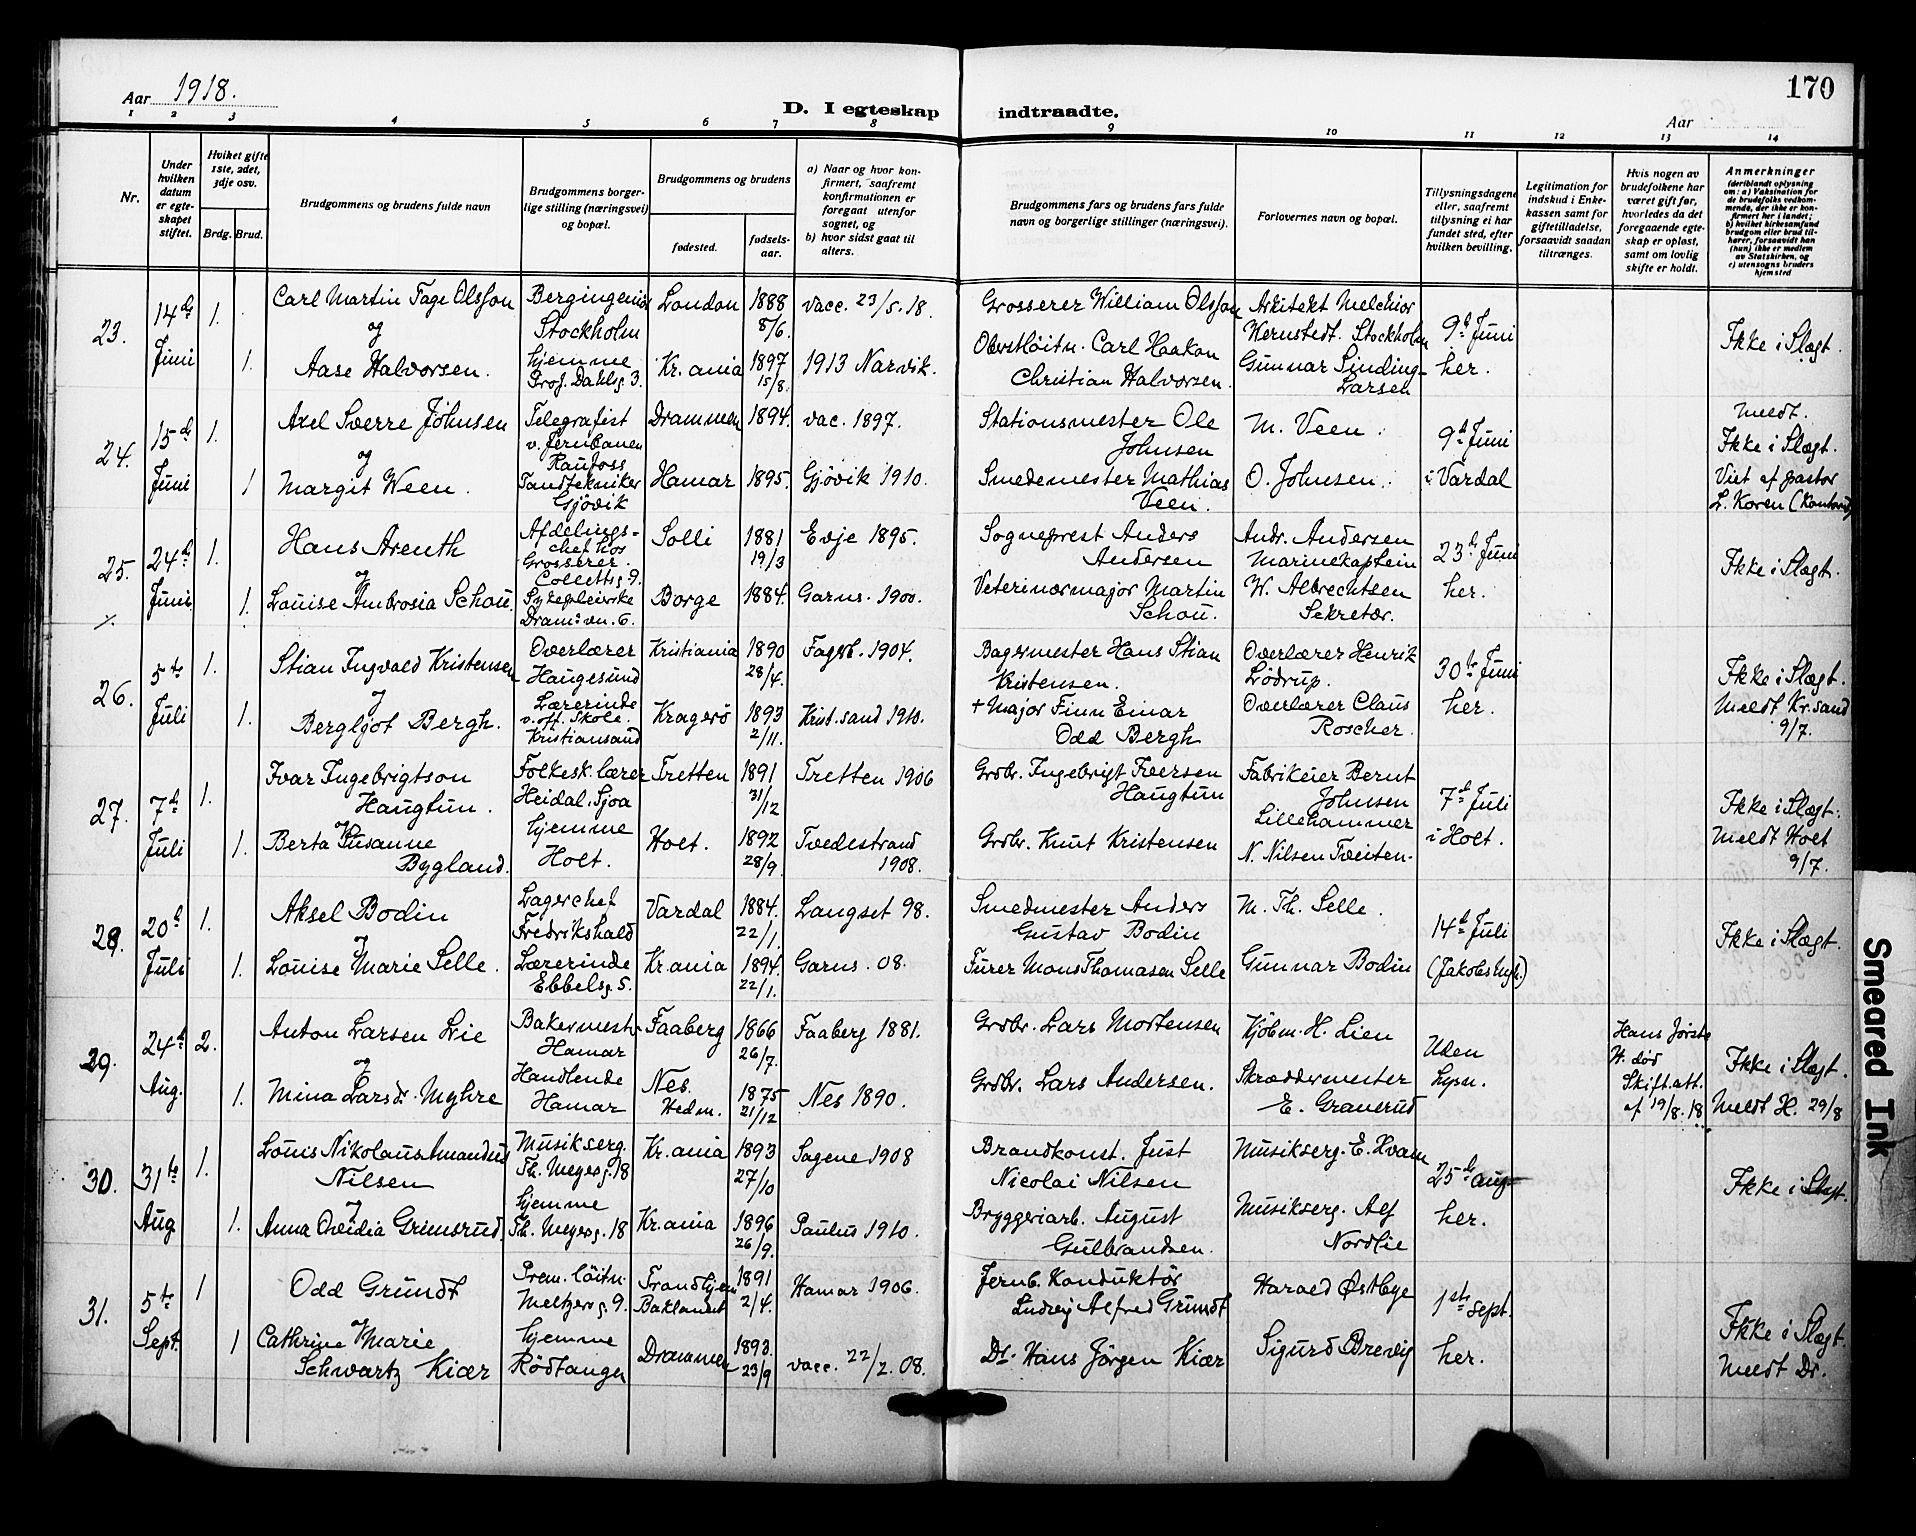 170
Aar 1918.
D. I egteskap indtraadte.
Aar
1 2 3 4 5 6 7 8 9 10 11 12 13 14
Nr.
Under hvilken datum er egteskapet stiftet.
Hvilket gifte 1ste, 2det, 3dje osv.
Brdg. Brud.
Brudgommens og brudens fulde navn
Brudgommens borgerlige stilling (næringsvei) og bopæl.
Brudgommens og brudens
fødested.
fødselsaar.
a) Naar og hvor konfirmert, saafremt konfirmationen er foregaat utenfor sognet, og
b) hvor sidst gaat til alters.
Brudgommens fars og brudens fars fulde navn og borgerlige stillinger (næringsvei).
Forlovernes navn og bopæl.
Tillysningsdagene eller, saafremt tillysning ei har fundet sted, efter hvilken bevilling.
Legitimation for indskud i Enkekassen samt for giftetilladelse, forsaavidt saadan tiltrænges.
Hvis nogen av brudefolkene har været gift før, hvorledes da det foregaaende egteskap er opløst, samt om lovlig skifte er holdt.
Anmerkninger
(deriblandt oplysning om: a) Vaksination for de brudefolks vedkommende, der ikke er konfirmert her i landet; b) hvilket kirkesamfund brudgom eller brud tilhører, forsaavidt han (hun) ikke er medlem av Statskirken, og c) utensogns bruders hjemsted
23. 14de Juni 1. Carl Martin Tage Olsson Bergingeniør Stockholm London 1888 8/6. vacc. 23/5.18. Grosserer William Olsson Arkitekt Melchior Wernstedt. Stockholm 9d Juni her. Ikke i Slægt.
og
1. Aase Halvorsen. hjemme Prof. Dahls g. 3. Kr.ania 1897 15/8. 1913 Narvik. Oberstløitn. Carl Haakon Christian Halvorsen. Gunnar Sinding-Larsen
24. 15d Juni 1. Axel Sverre Johnsen Telegrafist v. Jernbanen Raufoss Drammen 1894. vac. 1897. Stationsmester Ole Johnsen M. Veen. 9d Juni i Vardal Meldt. Ikke i Slægt. Viet af pastor L. Koren
og
1 Margit Ween. Tandtekniker Gjövik Hamar 1895. Gjövik 1910. Smedemester Mathias Veen. O. Johnsen.
25. 24d Juni 1. Hans Arenth Afdelingschef hos Grosserer. Colletts g. 9. Solli 1881 19/3 Evje 1895. Sogneprest Anders Andersen Andr. Andersen Marinekaptein 23d Juni her. Ikke i Slægt.
og
1. Louise Ambrosia Schou. Sykepleierske Dram: vn. 6. Borge 1884. Garns. 1900. Veterinærmajor Martin Schou. W. Albrechtsen Sekretær.
26. 5te Juli 1. Stian Ingvald Kristensen Overlærer Haugesund Kristiania 1890 28/4. Fagerb. 1904. Bagermester Hans Stian Kristensen. Overlærer Henrik Lødrup. 30te Juni her. Ikke i Slægt. Meldt Kr.sand 9/7.
og
1. Bergljot Bergh. Lærerinde v. off. Skole. Kristiansand Kragerö 1893 2/11. Krist.sand 1910. + Major Finn Einar Odd Bergh Overlærer Claus Roscher.
27. 7d Juli 1. Ivar Ingebrigtson Haugtun. Folkesk.lærer Heidal. Sjoa Tretten 1891 31/12 Tretten 1906 Grdbr. Ingebrigt Iversen Haugtun Fabrikeier Bernt Johnsen Lillehammer 7d Juli i Holt. Ikke i Slægt. Meldt Holt 9/7.
og
1. Berta Susanne Bygland. hjemme Holt. Holt. 1892 28/9. Tvedestrand 1908. Grdbr. Knut Kristensen N. Nilsen Tveiten.
28. 20d Juli 1. Aksel Bodin Lagerchef Fredrikshald Vardal 1884. 22/1. Langset 98. Smedmester Anders Gustav Bodin M. Th. Selle. 14d Juli (Jakobs mgh.) Ikke i Slægt.
og
1. Louise Marie Selle. Lærerinde Ebbels g. 5. Kr.ania 1894. 22/1. Garns. 08. Furer Mons Thomasen Selle Gunnar Bodin
29. 24d Aug. 2. Anton Larsen Lie Bakermestr Hamar Faaberg 1866 26/7. Faaberg 1881. Grdbr. Lars Mortensen Kjöbm. H. Lien Uden lysn. Hans første H. död Skift.att. af 19/8.18 Ikke i Slægt. Meldt H. 29/8
og
1. Mina Larsd. Myhre Handlende Hamar Nes. Hedm. 1875 21/12 Nes 1890. Grdbr. Lars Andersen. Skræddermester E. Granerud
30. 31te Aug 1. Louis Nikolaus Amandus Nilsen Musikserg. Th. Meyers g. 18 Kr.ania 1893 27/10 Sagene 1908 Brandkonst. Just Nicolai Nilsen Musikserg. E. Hvam 25de aug her. Ikke i Slægt.
og
1. Anna Ovidia Grimsrud. hjemme Th. Meyers g. 18 Kr.ania 1896 26/9. Paulus 1910. Bryggeriarb. August Gulbrandsen. Musikserg. Alf Nordlie
31. 5te Sept. 1 Odd Grundt Prem.löitn. Meltzers g. 9. Trondhjem Baklandet 1891 2/4. Hamar 1906. Jernb. Konduktör Ludvig Alfred Grundt Harald Østbye 1ste sept. her. Ikke i Slægt. Meldt Dr.
og
1 Cathrine Marie Schwartz Kiær hjemme Rödtangen Drammen 1893. 23/9 vacc. 22/2.08. Dr. Hans Jörgen Kiær Sigurd Brevig
Smeared Ink